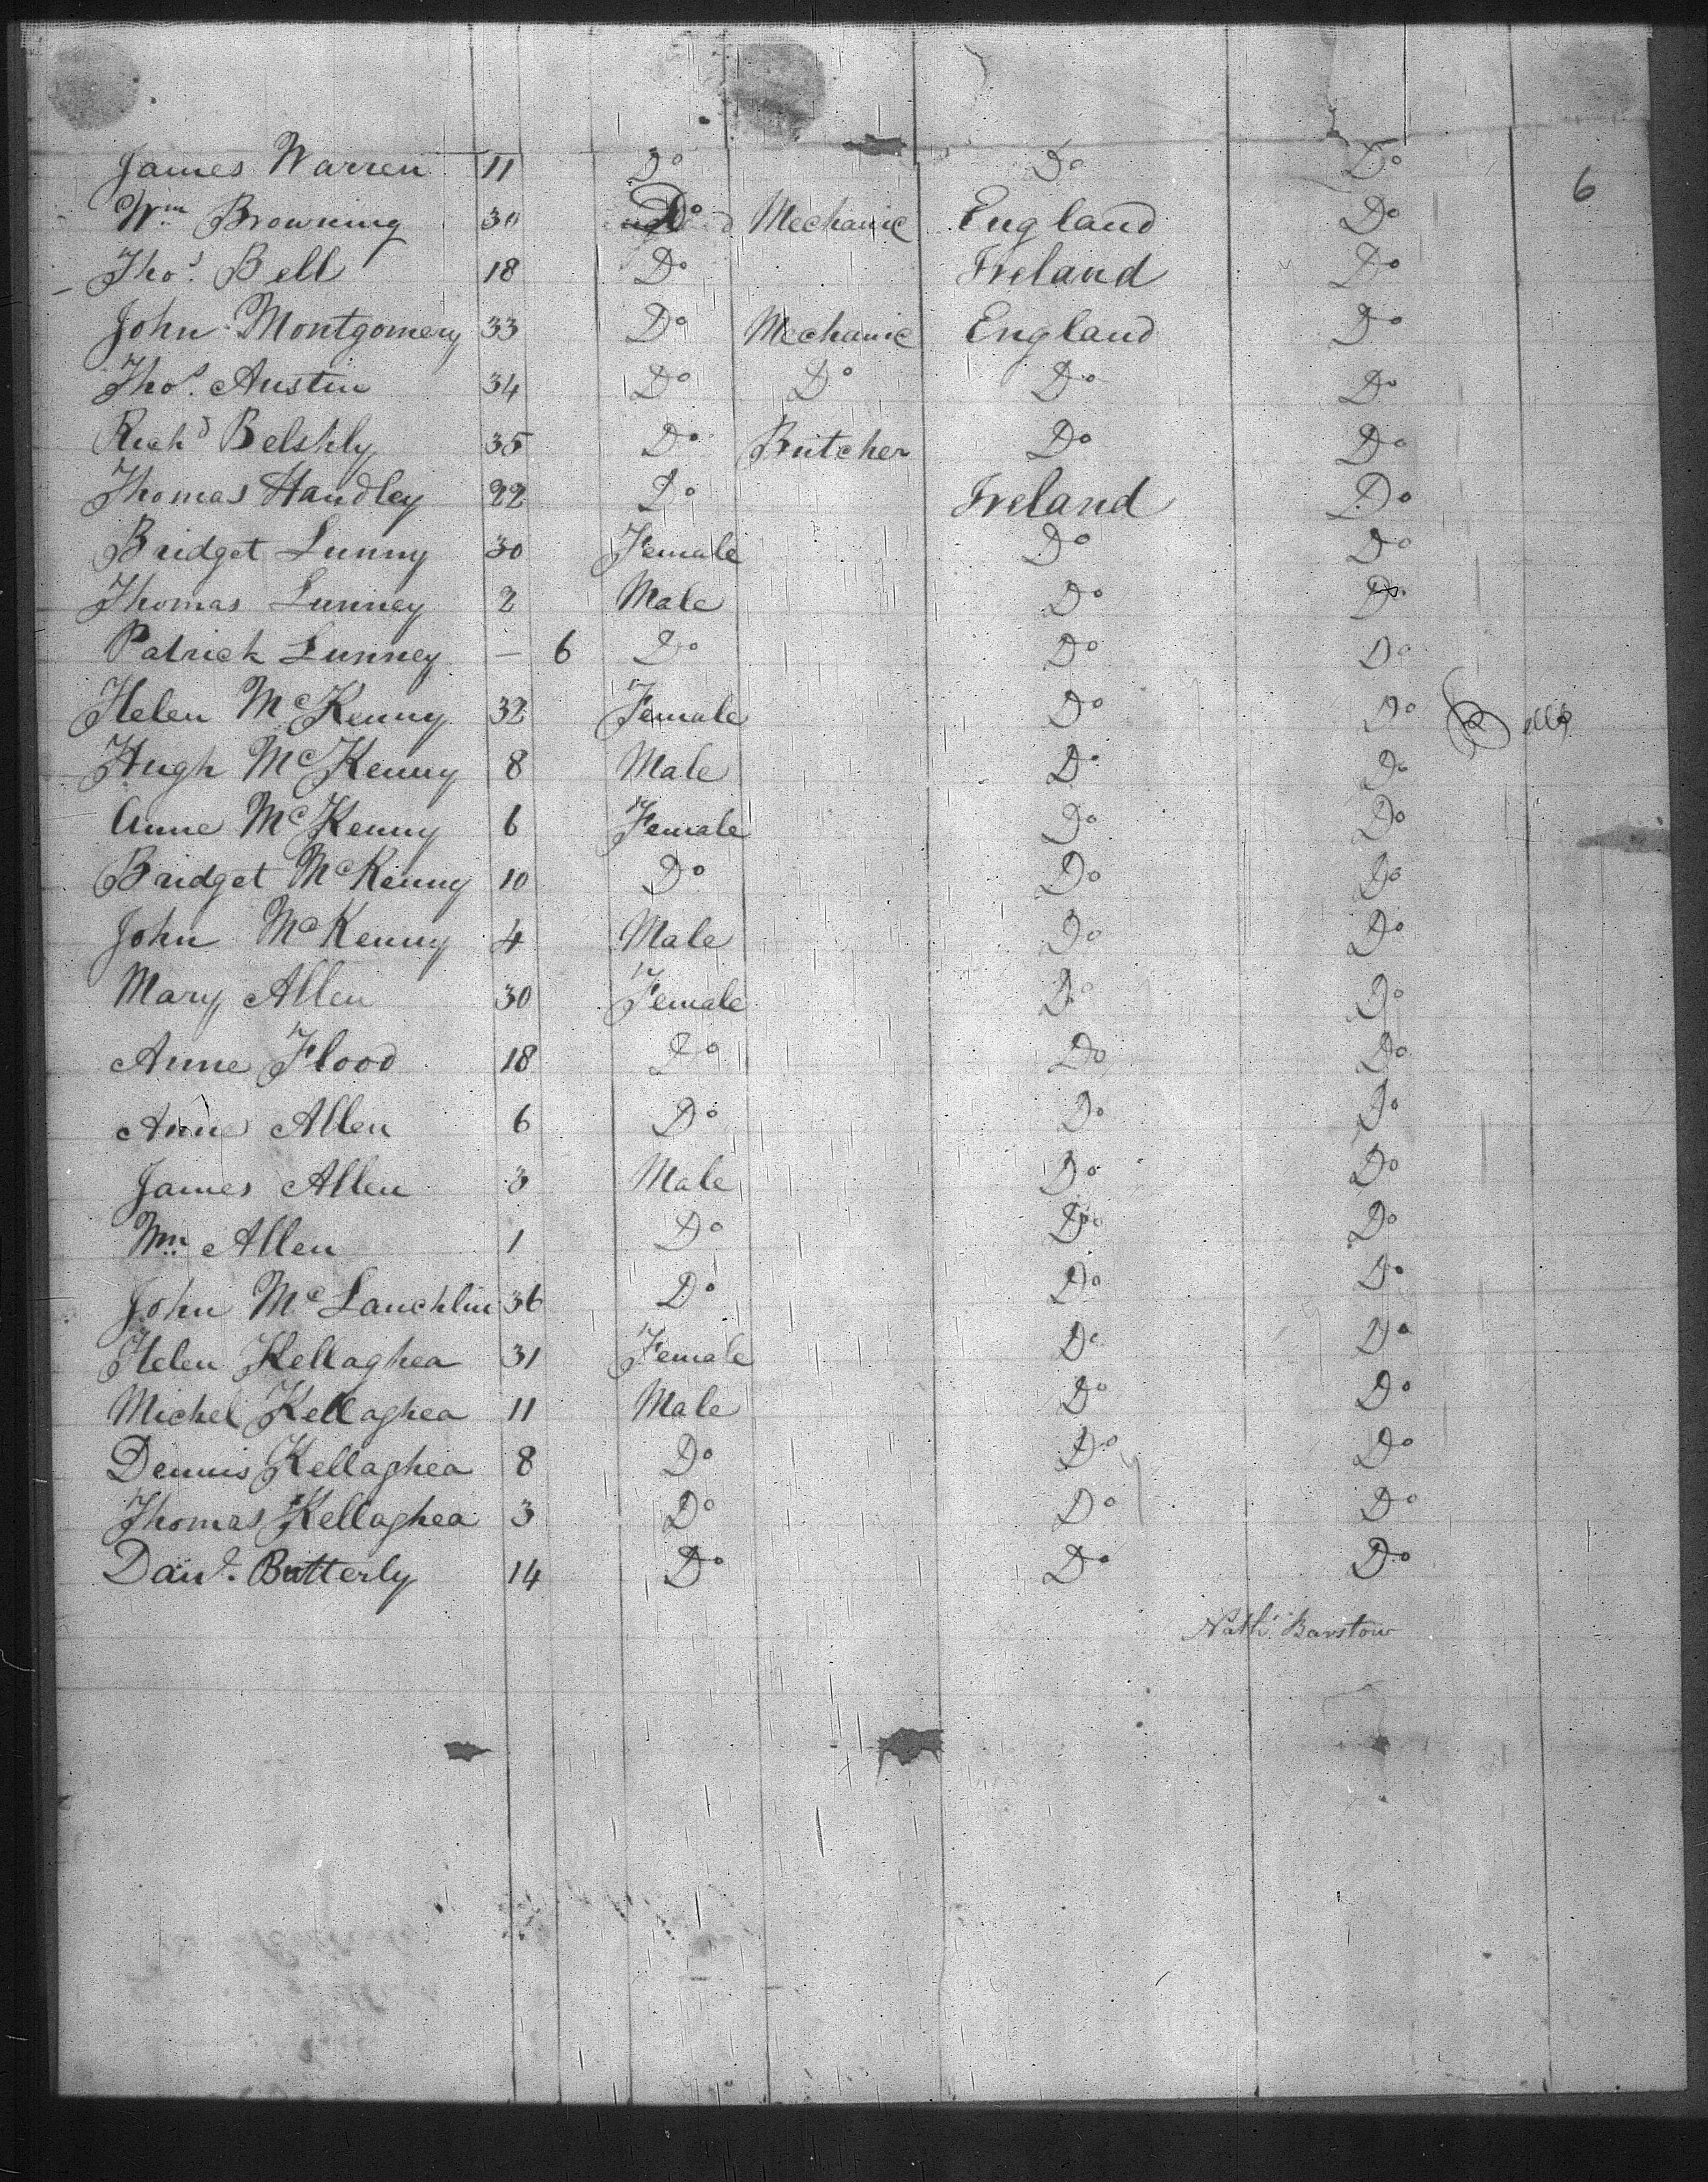 James Warren 11 Do Do Do 6
Wm Browning 30 Do Mechanic England Do
Thos. Bell 18 Do Ireland Do
John Montgomery 33 Do Mechanic England Do
Thos. Austin 34 Do Do Do Do
Richd Belshly 35 Do Butcher Do Do
Thomas Handley 22 Do Ireland Do
Bridget Lunny 30 Female Do Do
Thomas Lunney 2 Male Do Do
Patrick Lunney — 6 Do Do Do
Helen McKenny 32 Female Do Do
Hugh McKenny 8 Male Do Do
Anne McKenny 6 Female Do Do
Bridget McKenny 10 Do Do Do
John McKenny 4 Male Do Do
Mary Allen 30 Female Do Do
Anne Flood 18 Do Do Do
Anne Allen 6 Do Do Do
James Allen 3 Male Do Do
Wm Allen 1 Do Do Do
John McLauchlin 36 Do Do Do
Helen Kellaghea 31 Female Do Do
Michel Kellaghea 11 Male Do Do
Dennis Kellaghea 8 Do Do Do
Thomas Kellaghea 3 Do Do Do
Davd. Butterly 14 Do Do Do
Nathl Barstow